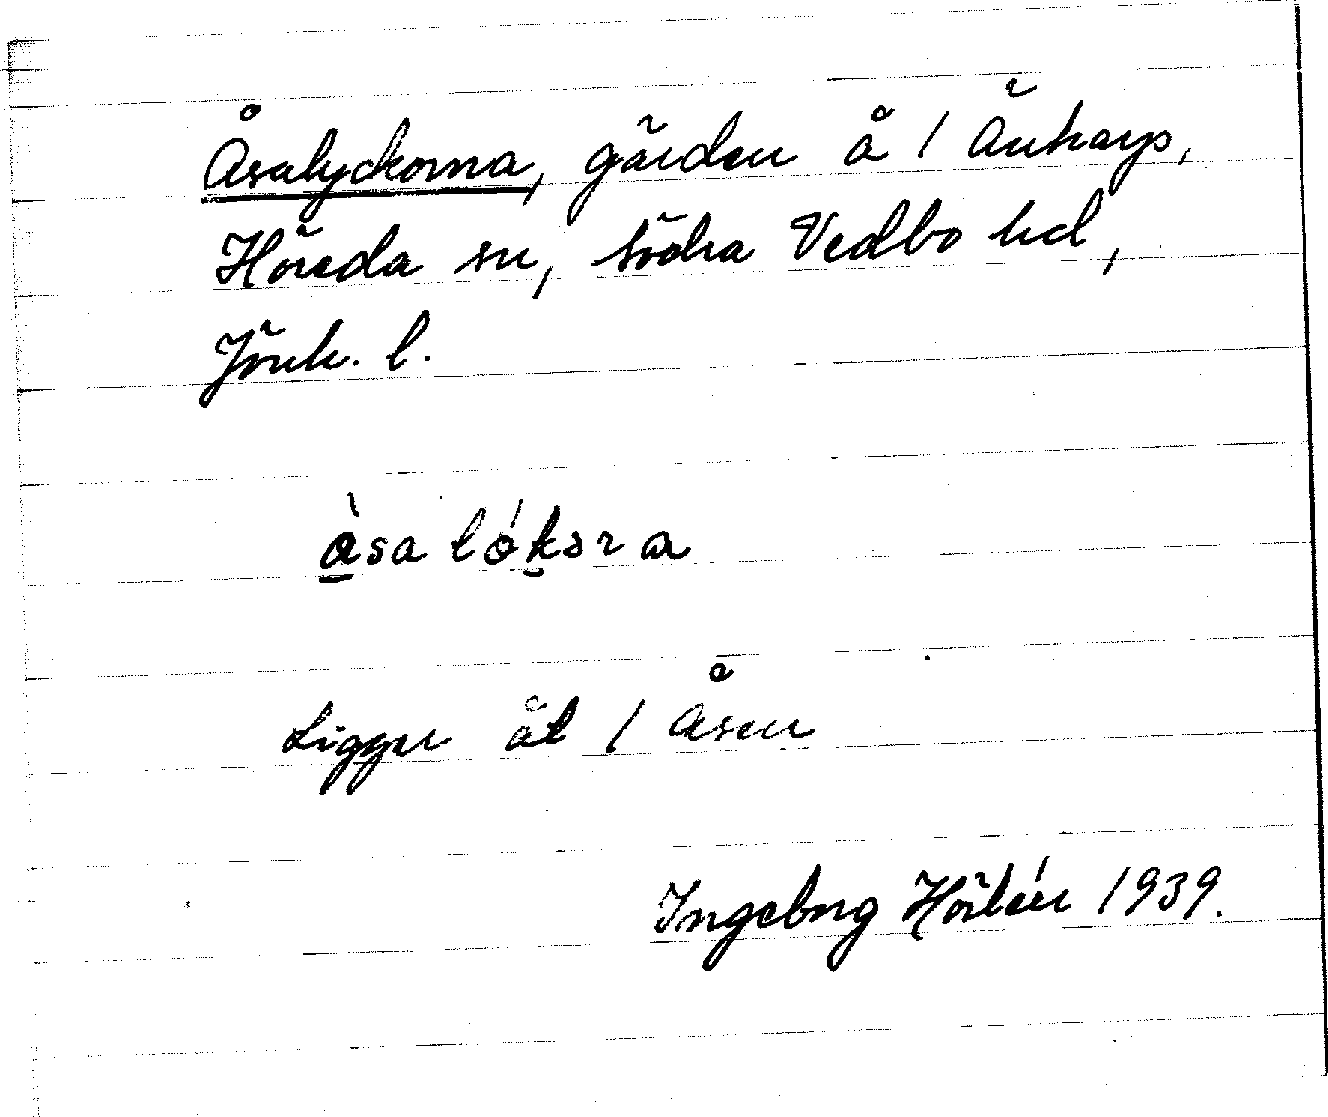 Åsalyckorna, gärden å / Änkarp,
Höreda sn, Södra Vedbo hd,
Jönk. l.
àsa lókəra
Ligger åt / Åsen
Ingeborg Hörlén 1939.